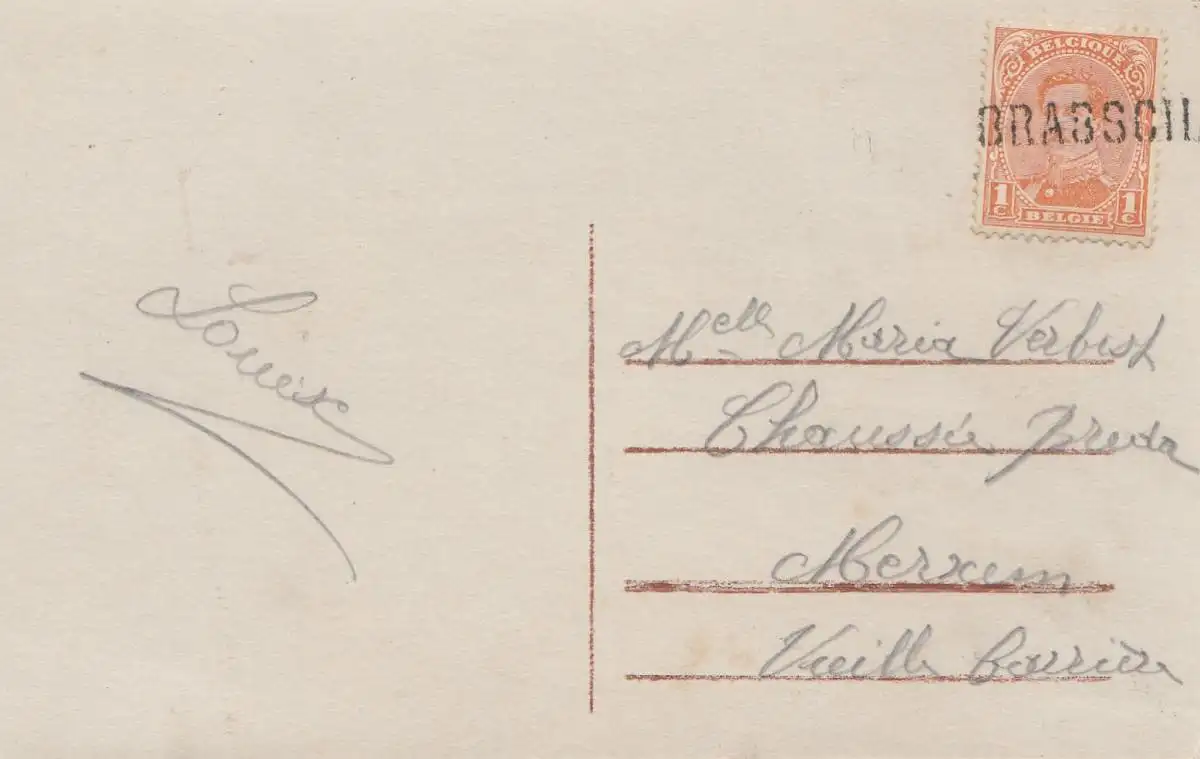 BELGIQUE
BRASSCH
1c 1c
BELGIE
Louise
Melle Maria Verbist
Chaussée Breda
Merxem
Vieille Barrière